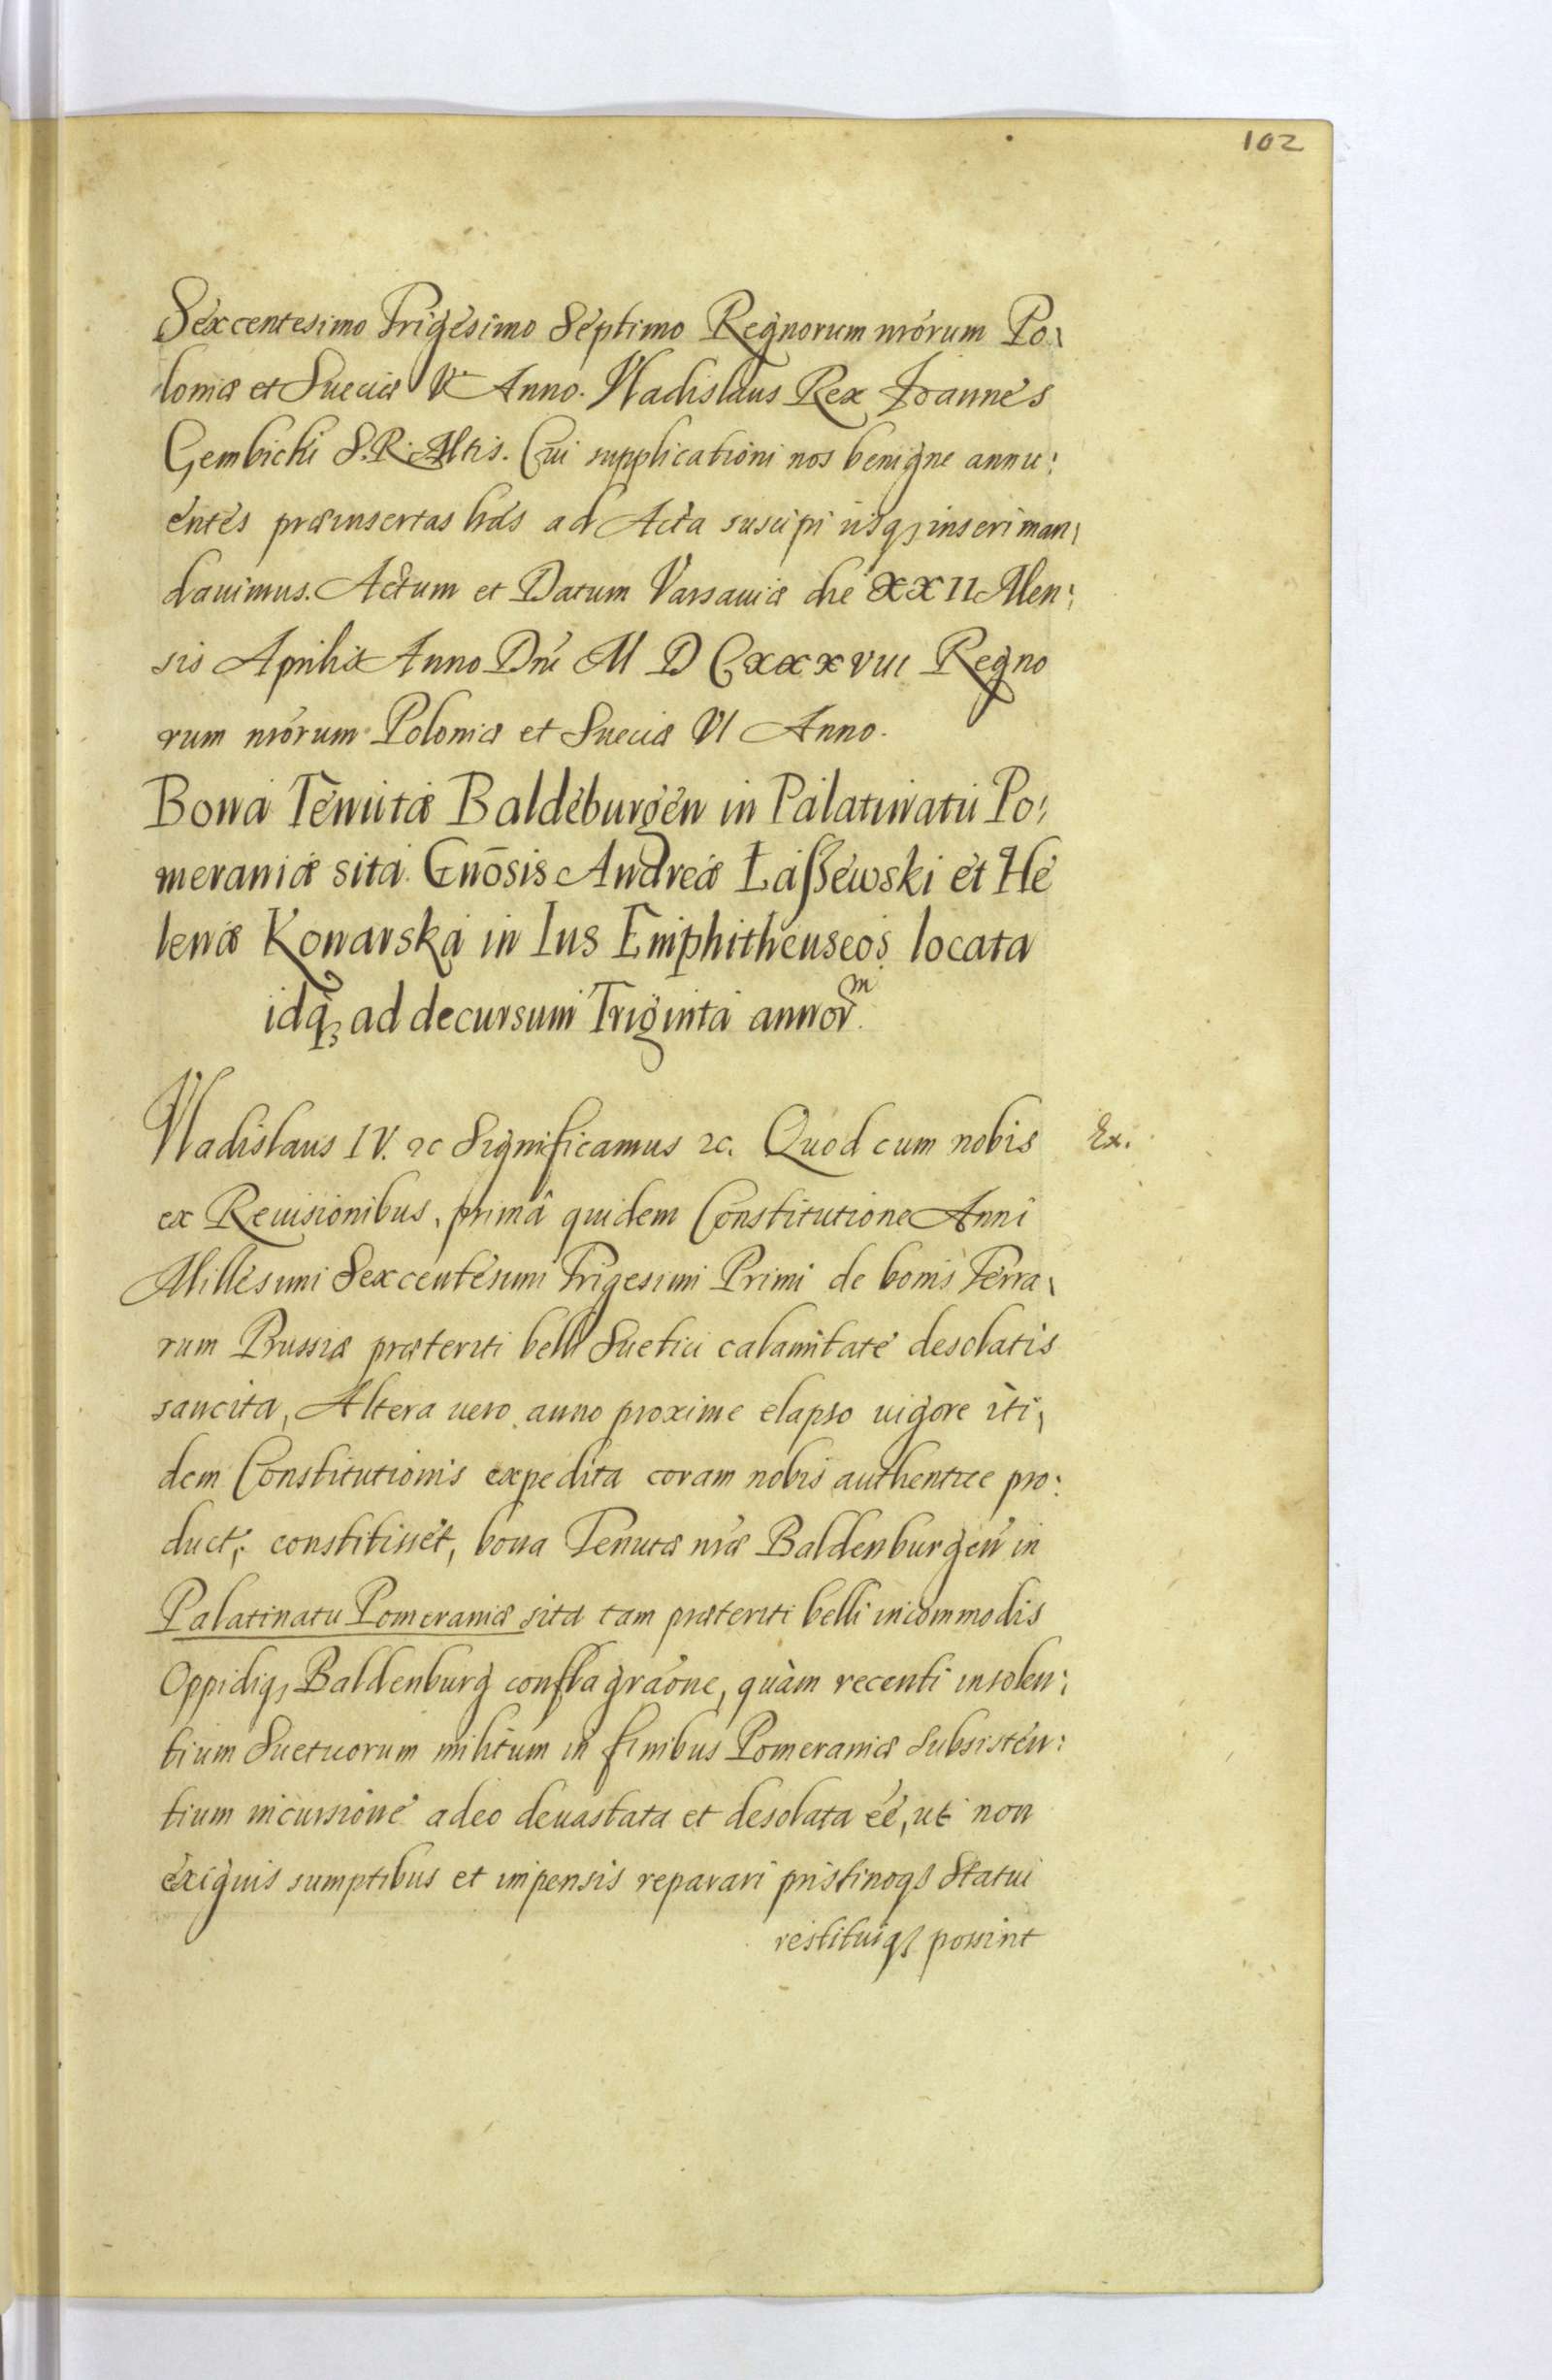 102
Sexcentesimo Trigesimo Septimo Regnorum nrórum Po\
loniæ et Sueciæ V. Anno. Vladislaus Rex Joannes
Gembicki S. R. Mtis. Cui supplicationi nos benigne annu:
entes præinsertas lrás ad Acta suscipi iisq, inseri man\
dauimus. Actum et Datum Varsauiæ die XXII Men:
sis Aprilis Anno Dni M D CXXXVIII Regno
rum nrórum Poloniæ et Sueciæ VI Anno.
Bona Tenutæ Baldeburgen in Palatinatu Po:
meraniæ sita. Gnōsis Andreæ Łaßewski et He
lenæ Konarska in Ius Emphitheuseos locata
idq, ad decursum Triginta annorm.
Vladislaus IV. ꝛc Significamus ꝛc. Quod cum nobis
Ex.
ex Reuisionibus, primâ quidem Constitutione Anni
Millesimi Sexcentesimi Trigesimi Primi de bonis Terra\
rum Prussiæ præteriti belli Suetici calamitate desolatis
sancita, Altera uero anno proxime elapso uigore iti\
dem Constitutionis expedita coram nobis authentice pro:
duct; constitisset, bona Tenutæ nræ Baldenburgen in
Palatinatu Pomeraniæ sita tam præteriti belli incommodis
Oppidiq, Baldenburg conflagraóne, quàm recenti insolen:
tium Suetuorum militum in finibus Pomeraniæ Subsisten:
tium incursione adeo deuastata et desolata éé, ut non
exiguis sumptibus et impensis reparari pristinoq, Statui
restituiq, possint